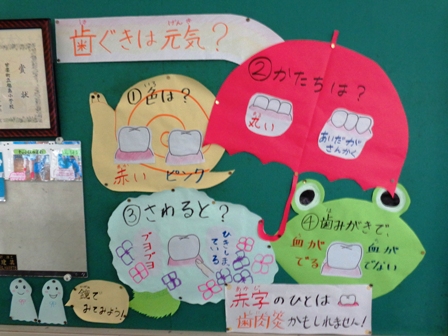 歯ぐきは元気？
は げんき
①色は？
いろ
赤い ピンク
②かたちは？
丸い
あいだが
さんかく
③さわると？
ブヨブヨ
ひきしまっ
ている
④歯みがきで、
血が
でる
血が
でない
鏡で
みてみよう！
赤字のひとは
あかじ
歯肉炎かもしれません！
賞状